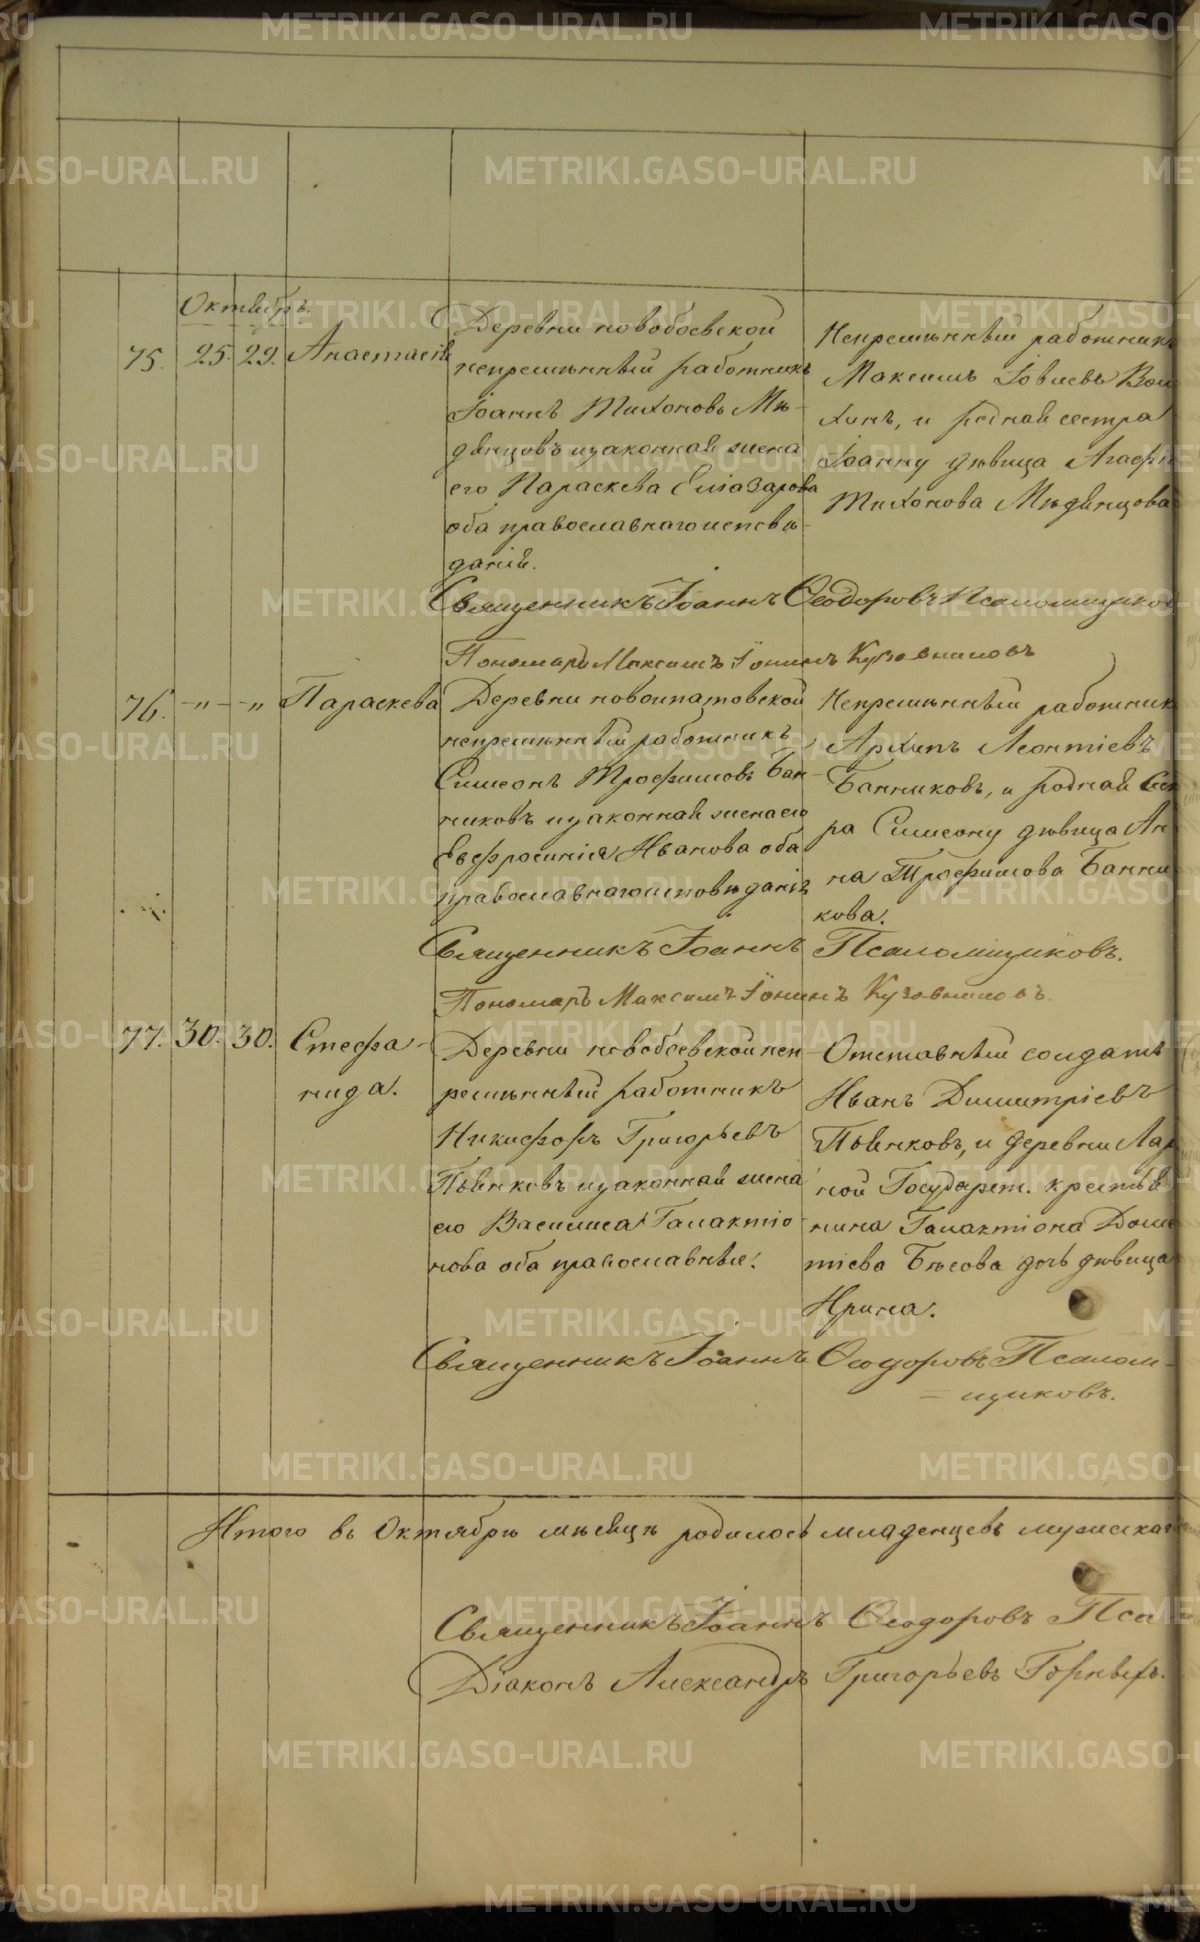 Октябрь.
75. 25. 29. Анастасія
Деревни новобоевской
непремѣнный работникъ
Іоаннъ Тихоновъ Мѣ-
дянцовъ и законная жена
его Параскева Еліазарова
оба православнаго исповѣ-
данія.
Непремѣнный работникъ
Максимъ Іовлевъ
хинъ, и родная сестра
Іоанну дѣвица
Тихонова Мѣдянцова
Священникъ Іоаннъ Ѳеодоровъ
Пономарь Максимъ Іонинъ Кузовниковъ
76. -„- -„ Параскева
Деревни новоипатовской
непремѣнный работникъ
Симеонъ Трофимовъ Бан-
никовъ и законная жена его
Евфросинія Иванова оба
православнаго исповѣданія
Непремѣнный работник
Архипъ Леонтіевъ
Банниковъ, и родная
ра Симеону дѣвица Ан
на Трофимова Банни
кова.
Священникъ Іоаннъ Псаломщиковъ.
Пономарь Максимъ Іонинъ Кузовниковъ.
77. 30. 30. Стефа-
нида.
Деревни новобоевской неп
ремѣнный работникъ
Никифоръ Григорьевъ
Пьянковъ и законная жена
его Василиса Галактіо
нова оба православные.
Отставный солдатъ
Иванъ Димитріевъ
Пьянковъ, и деревни
ной Государст. крестья
нина Галактіона
тіева Бѣсова дочь дѣвица
Ирина.
Священникъ Іоаннъ Ѳеодоровъ Псалом-
= щиковъ.
Итого въ Октябрѣ мѣсяцѣ родилось младенцевъ мужска
Священникъ Іоаннъ Ѳеодоровъ Пса
Діаконъ Александръ Григорьевъ Горныхъ.
METRIKI.GASO-URAL.RU